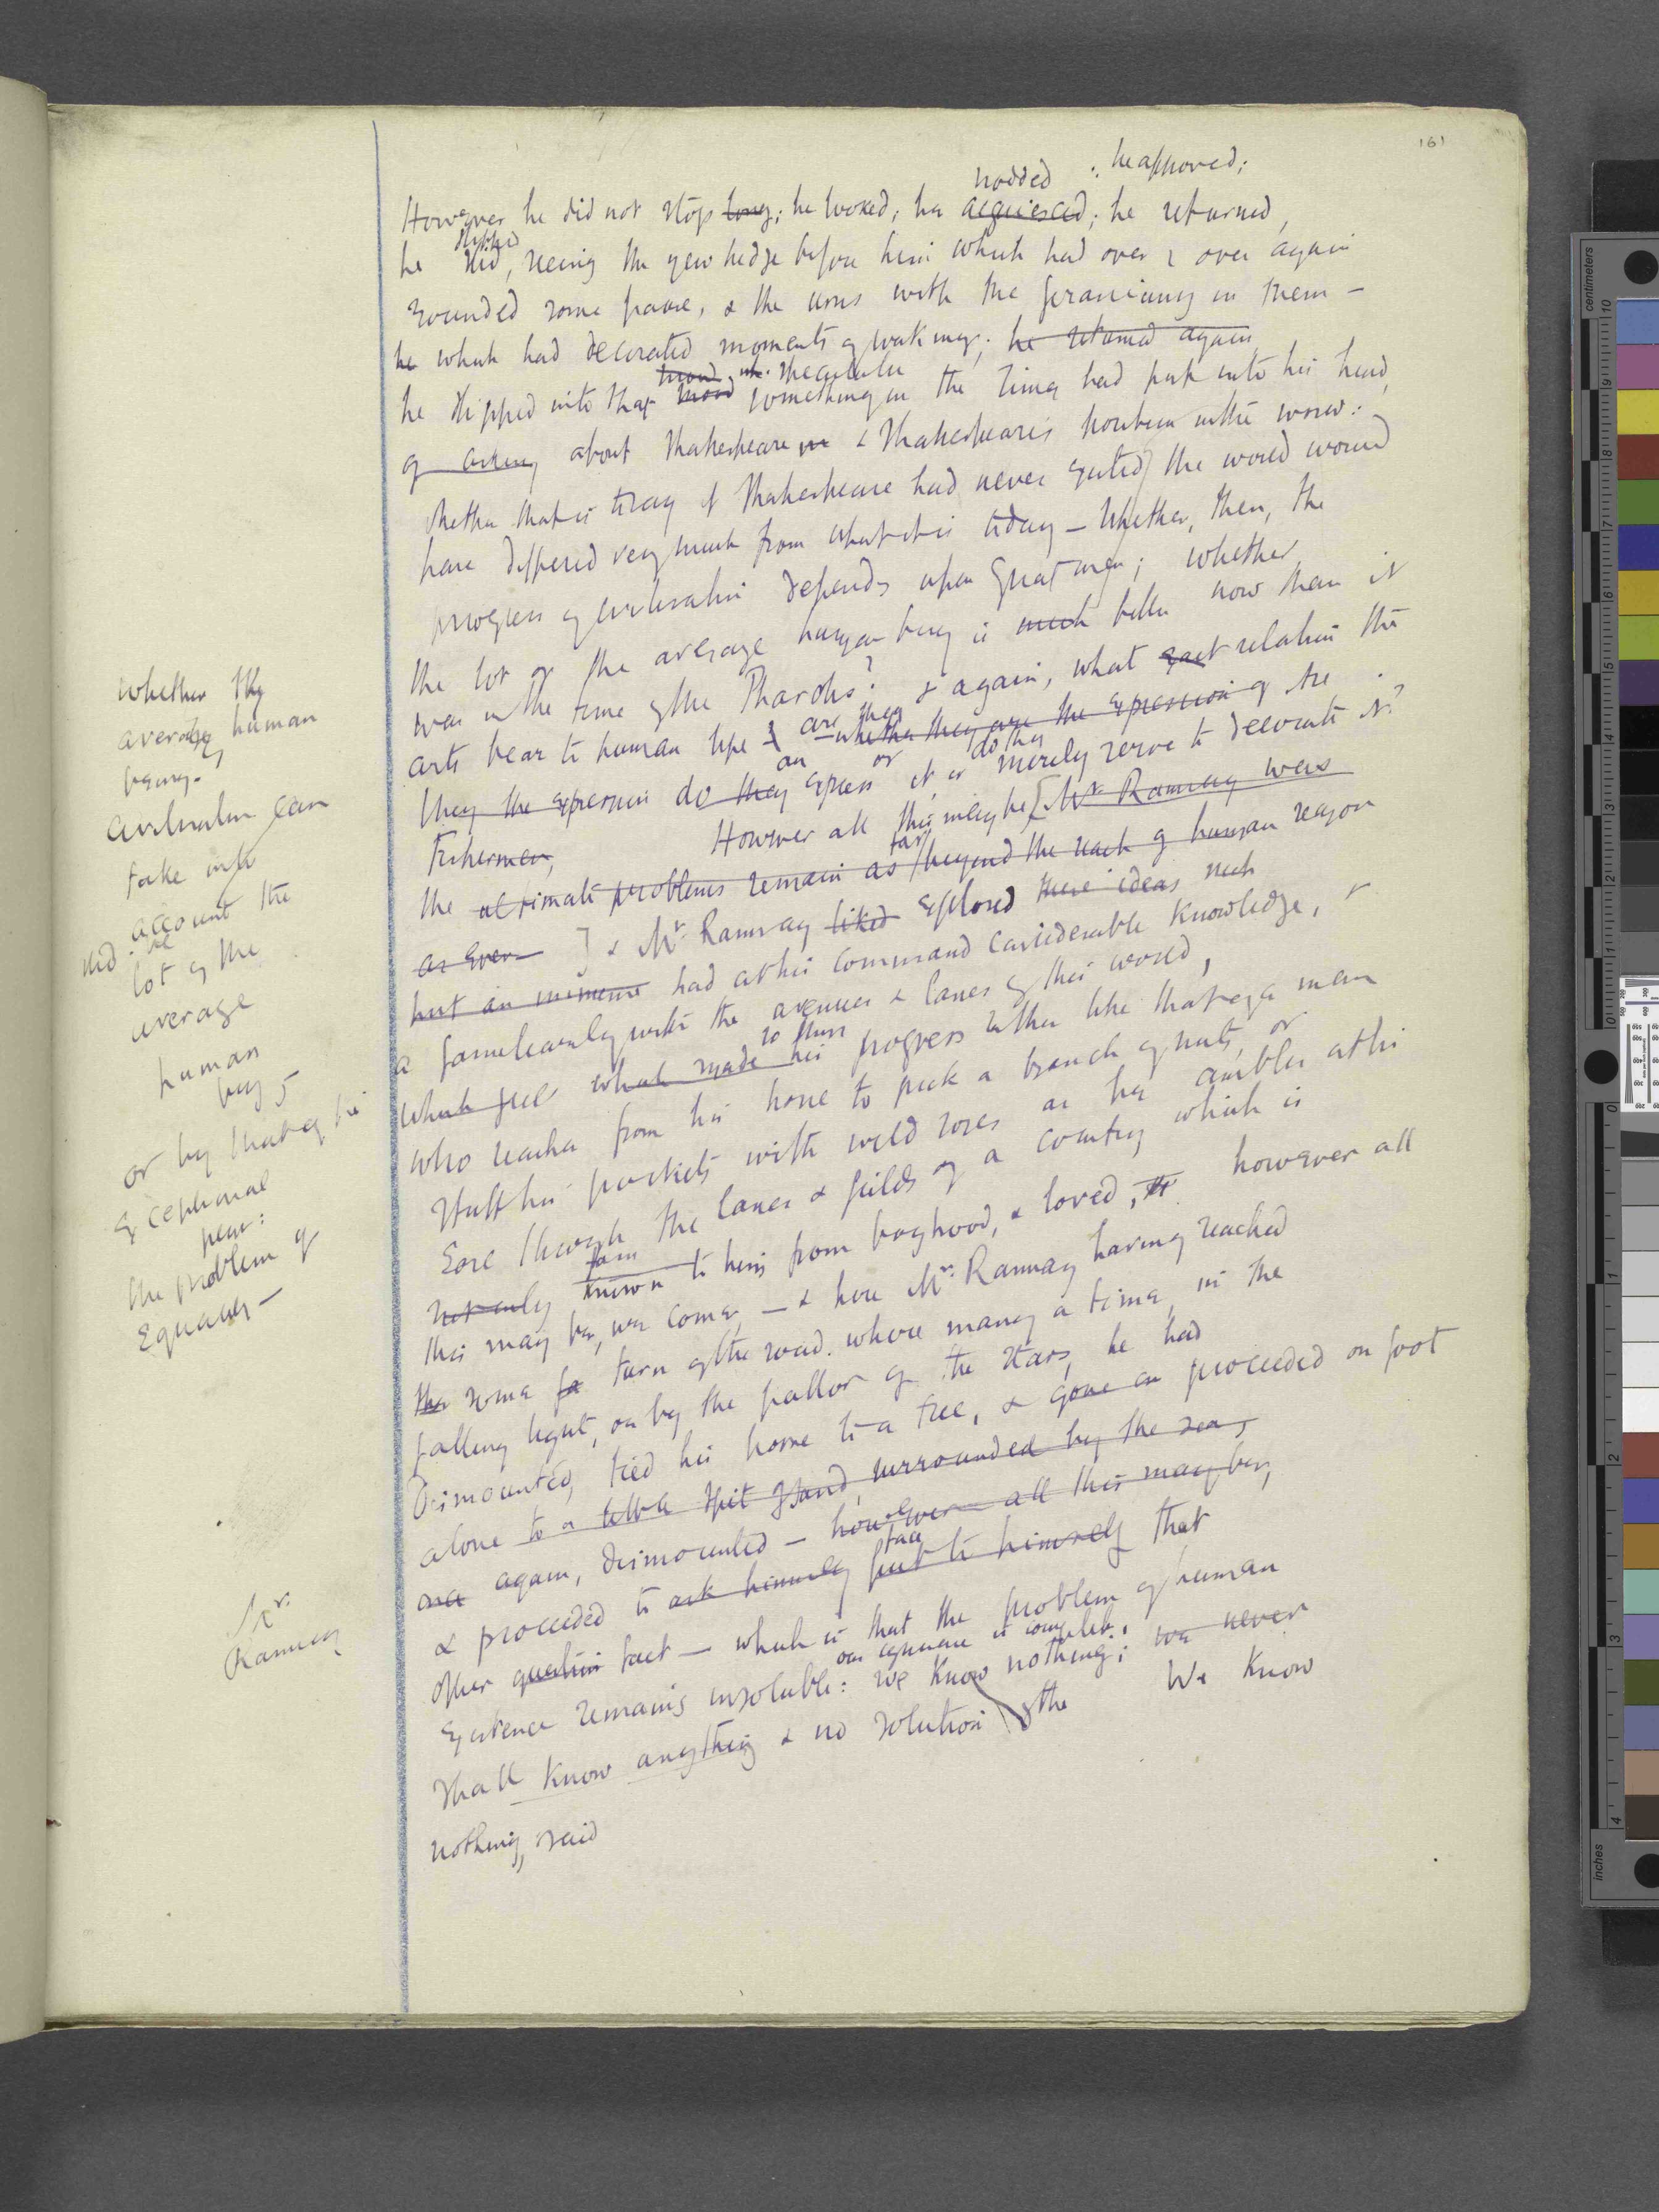 161
nodded : he approved;
However he did not stop long; he looked; he acquiesced; he returned,
slipped
he slid, seeing the yew hedge before him which had over & over again
rounded some pause, & the urns with the geraniums in them –
he which had decorated moments of waking; he returned again
mood speculative
he slipped into that mood something in the Times had put into his head,
of asking about Shakespeare & Shakespeare's position in the world:
whether that is to say if Shakespeare had never existed the world would
have differed very much from what it is today – Whether, then, the
progress of civilisation depends upon Great men; whether
the lot of the average human being is much better now than it
was in the time of the Pharohs? & again, what exact relation the
arts bear to human life & are they whether they are the expression of the
an or do they
they the expression do they express it, or merely serve to decorate it?
Fishermen, However all this may be [Mr Ramsay was
far
the ultimate problems remain as beyond the reach of human reason
as ever ] & Mr. Ramsay liked explored these ideas
but an immense had at his command considerable knowledge, &
a familiarity with the avenues & lanes of this world,
so thus
which feel which made his progress rather like that of a man
who reaches from his horse to pick a branch of nuts, or
stuff his pockets with wild roses as he ambles at his
Ease through the lanes & fields of a country which is
not only known to him from boyhood, & loved, however all
this may be, we come, – & here Mr. Ramsay having reached
the some turn of the road where many a time, in the
falling light, or by the pallor of the stars, he had
Dismounted, tied his horse to a tree, & gone on proceeded on foot
alone to a little spit of sand, surrounded by the sea,
once again, dismounted – however all this may be,
face
& proceeded to ask himself put to himself that
other question fact – which is that the problem of human
our ignorance is complete:
Existence remains insoluble: we know nothing; we never
shall know anything & no solution & the We know
nothing, said
whether the
average human
being.
Civilisation can
take into
account the
lot of the
average
human
being
or by that of the
exceptional
the problem of
Equality –
Mr.
Ramsay